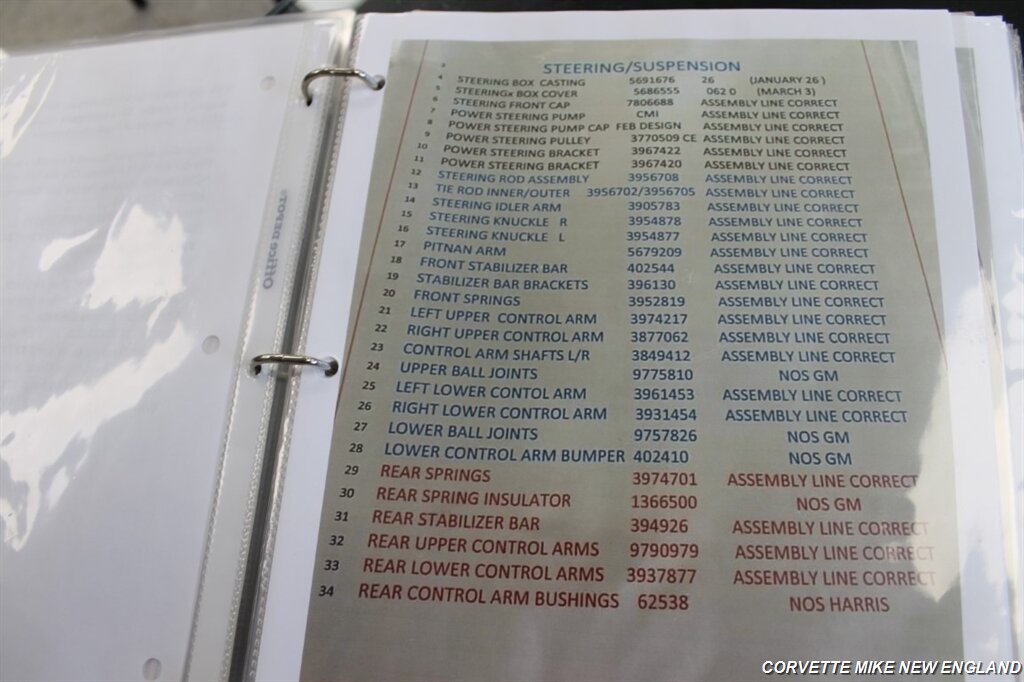 Office DEPOT
3 STEERING/SUSPENSION
4 STEERING BOX CASTING 5691676 26 (JANUARY 26 )
5 STEERINGx BOX COVER 5686555 062 0 (MARCH 3)
6 STEERING FRONT CAP 7806688 ASSEMBLY LINE CORRECT
7 POWER STEERING PUMP CMI ASSEMBLY LINE CORRECT
8 POWER STEERING PUMP CAP FEB DESIGN ASSEMBLY LINE CORRECT
9 POWER STEERING PULLEY 3770509 CE ASSEMBLY LINE CORRECT
10 POWER STEERING BRACKET 3967422 ASSEMBLY LINE CORRECT
11 POWER STEERING BRACKET 3967420 ASSEMBLY LINE CORRECT
12 STEERING ROD ASSEMBLY 3956708 ASSEMBLY LINE CORRECT
13 TIE ROD INNER/OUTER 3956702/3956705 ASSEMBLY LINE CORRECT
14 STEERING IDLER ARM 3905783 ASSEMBLY LINE CORRECT
15 STEERING KNUCKLE R 3954878 ASSEMBLY LINE CORRECT
16 STEERING KNUCKLE L 3954877 ASSEMBLY LINE CORRECT
17 PITNAN ARM 5679209 ASSEMBLY LINE CORRECT
18 FRONT STABILIZER BAR 402544 ASSEMBLY LINE CORRECT
19 STABILIZER BAR BRACKETS 396130 ASSEMBLY LINE CORRECT
20 FRONT SPRINGS 3952819 ASSEMBLY LINE CORRECT
21 LEFT UPPER CONTROL ARM 3974217 ASSEMBLY LINE CORRECT
22 RIGHT UPPER CONTROL ARM 3877062 ASSEMBLY LINE CORRECT
23 CONTROL ARM SHAFTS L/R 3849412 ASSEMBLY LINE CORRECT
24 UPPER BALL JOINTS 9775810 NOS GM
25 LEFT LOWER CONTOL ARM 3961453 ASSEMBLY LINE CORRECT
26 RIGHT LOWER CONTROL ARM 3931454 ASSEMBLY LINE CORRECT
27 LOWER BALL JOINTS 9757826 NOS GM
28 LOWER CONTROL ARM BUMPER 402410 NOS GM
29 REAR SPRINGS 3974701 ASSEMBLY LINE CORRECT
30 REAR SPRING INSULATOR 1366500 NOS GM
31 REAR STABILIZER BAR 394926 ASSEMBLY LINE CORRECT
32 REAR UPPER CONTROL ARMS 9790979 ASSEMBLY LINE CORRECT
33 REAR LOWER CONTROL ARMS 3937877 ASSEMBLY LINE CORRECT
34 REAR CONTROL ARM BUSHINGS 62538 NOS HARRIS
CORVETTE MIKE NEW ENGLAND